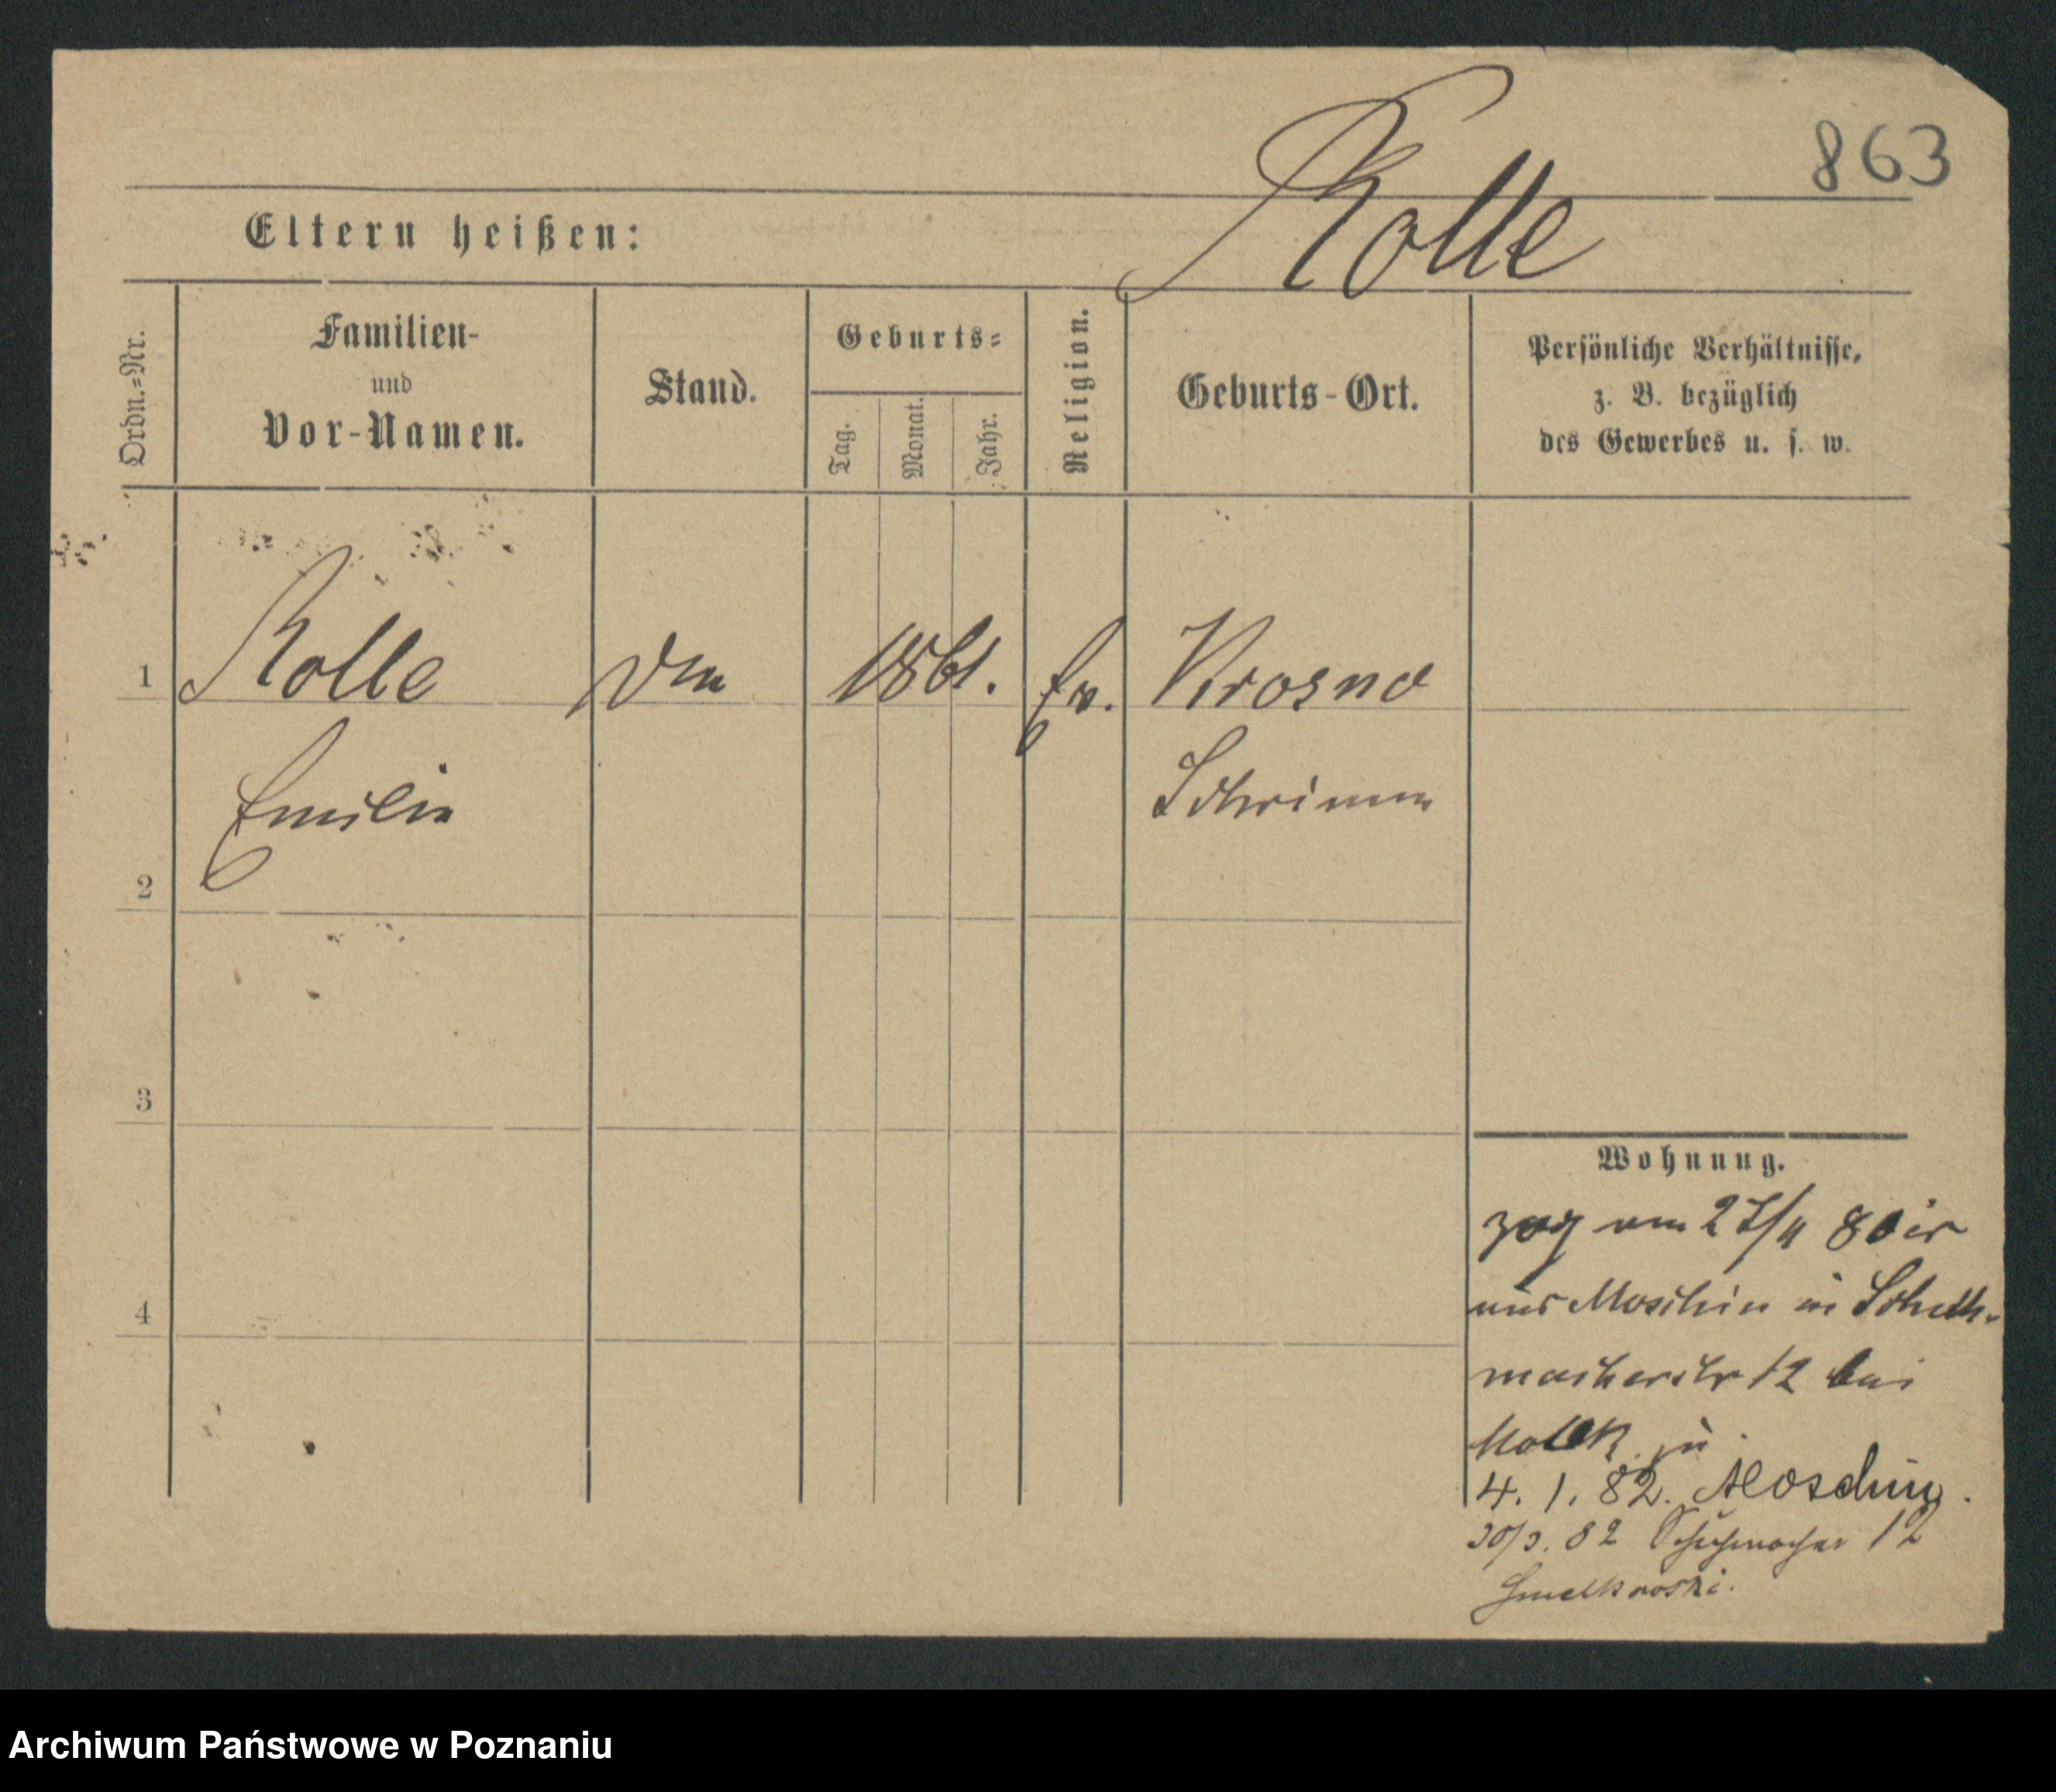 863
Rolle
Eltern heißen:
Ordn.-Nr.
Familien-
und
Vor-Namen.
Stand.
Geburts-
Tag.
Monat.
Jahr.
Religion.
Geburts-Ort.
Persönliche Verhältnisse,
z. B. bezüglich
des Gewerbes u. s. w.
1
Rolle
1861.
Ev.
Krosno
Emilie
Schrimm
2
3
4
Wohnung.
zog am 80 ir
aus Moschin in Schuh-
macherstr 12 bei
zu
4. 1. 82. Moschin.
30/3. 82 Schuhmacher 12
Archiwum Państwowe w Poznaniu